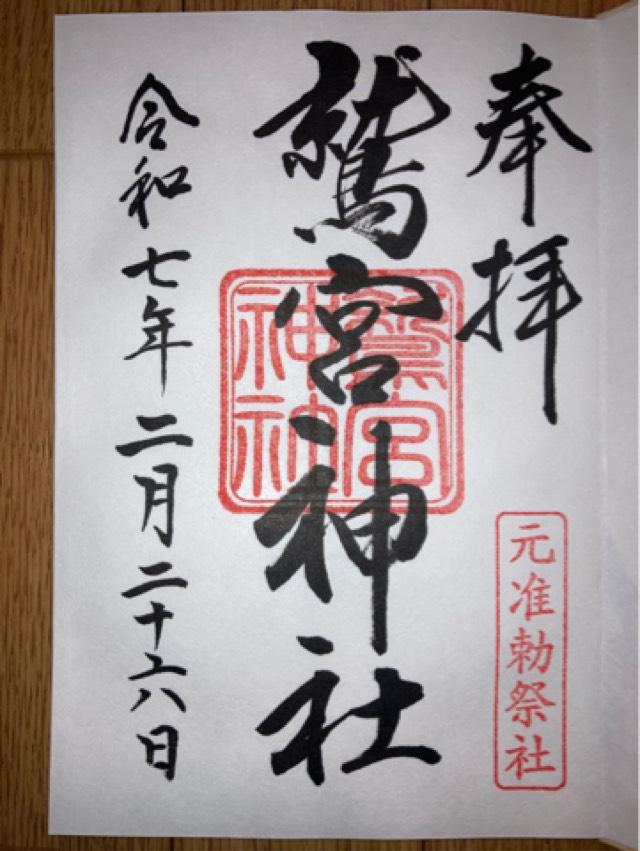 奉拝
元准勅祭社
鷲宮神社
鷲宮
神社
令和七年二月二十六日